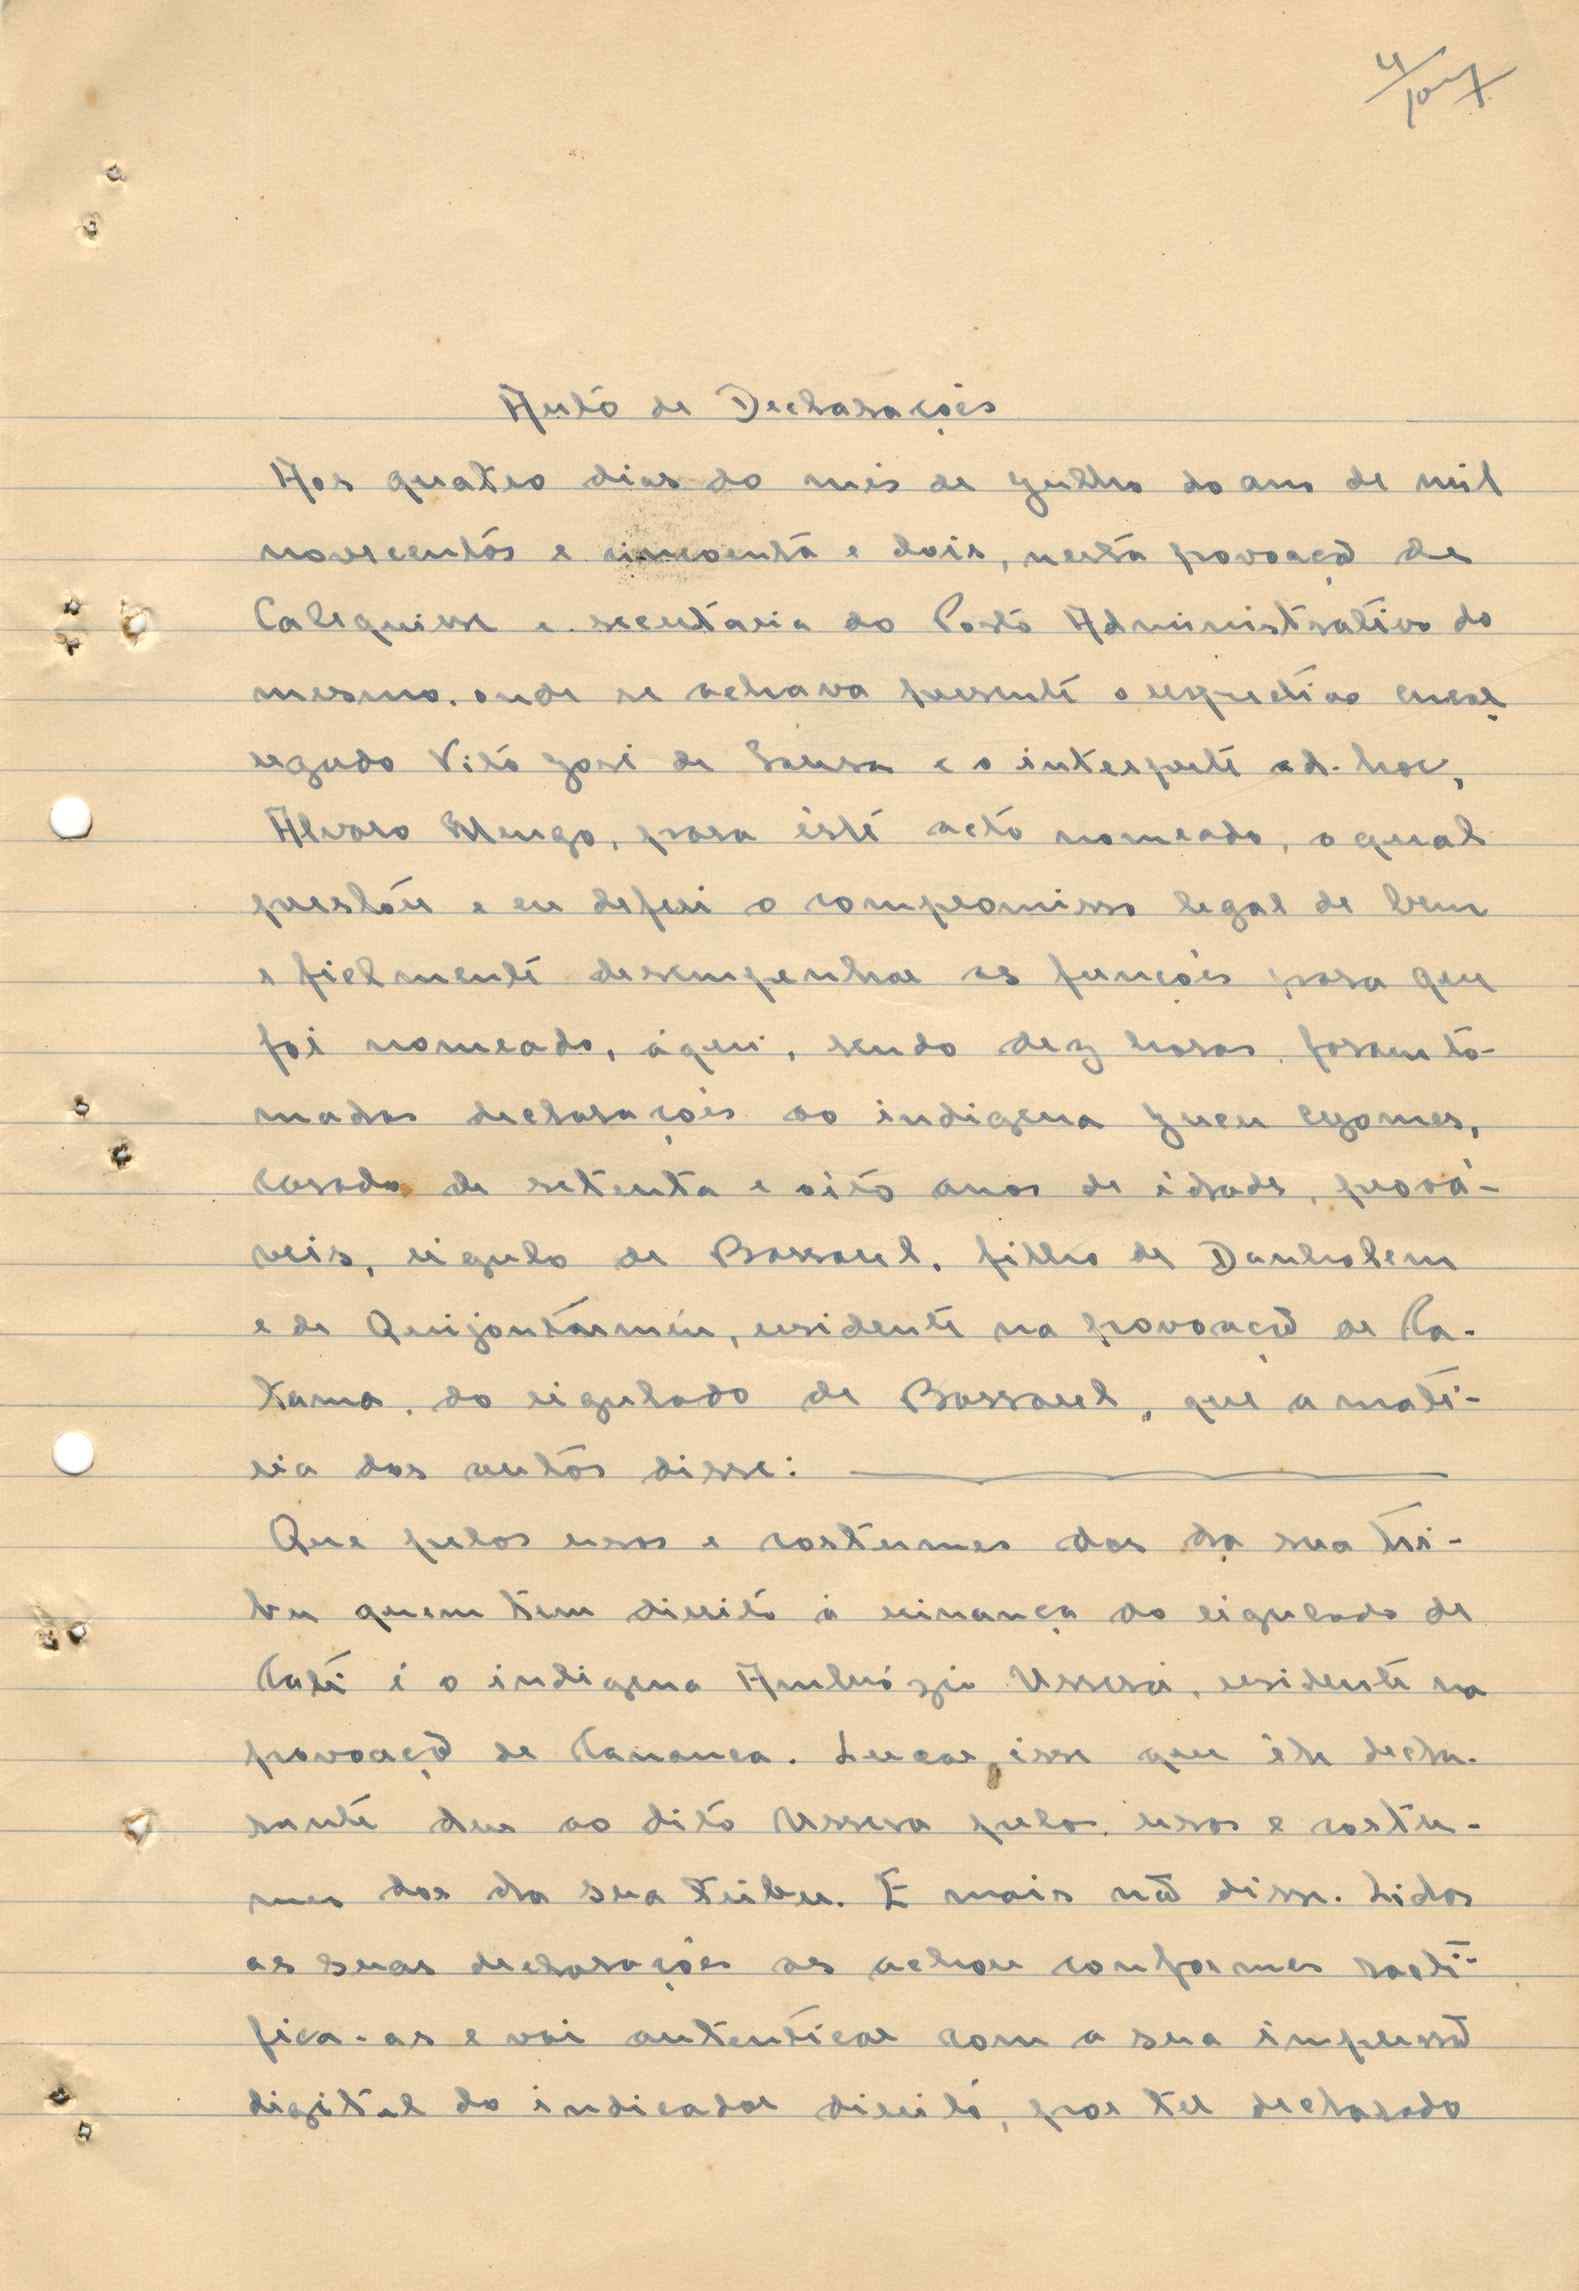 4
Auto de Declarações
Aos quatro dias do mês de Julho do ano de mil
novecentos e cincoenta e dois, nesta povoação de
Calequisse e secretaria do Posto Administrativo do
mesmo, onde se achava presente o respectivo encar
regado Vito José de Sousa e o interprete ad-hoc,
Alvaro Mengo, para êste acto nomeado, o qual
prestou e eu deferi o compromisso legal de bem
e fielmente desempenhar as funções para que
foi nomeado, áqui, sendo dez horas, foram to-
madas declarações ao indigena Gomes,
casado de setenta e oito anos de idade, prová-
veis, regulo de Bassarel, filho de Danholem
e de residente na povoação de Ca-
tama, do regulado de Bassarel, que a maté-
ria dos autos disse:
Que pelos usos e costumes dos da sua tri-
bu quem tem direito á reinança do regulado de
Caté é o indigena Ambrózio Ussera, residente na
povoação de Cananca. isse que êle decla-
rante deu ao dito Ussera pelos usos e costu-
mes dos da sua tribu. E mais não disse. Lidas
as suas declarações as achou conformes racti-
fica-as e vai autenticar com a sua impressão
digital do indicador direito, por ter declarado